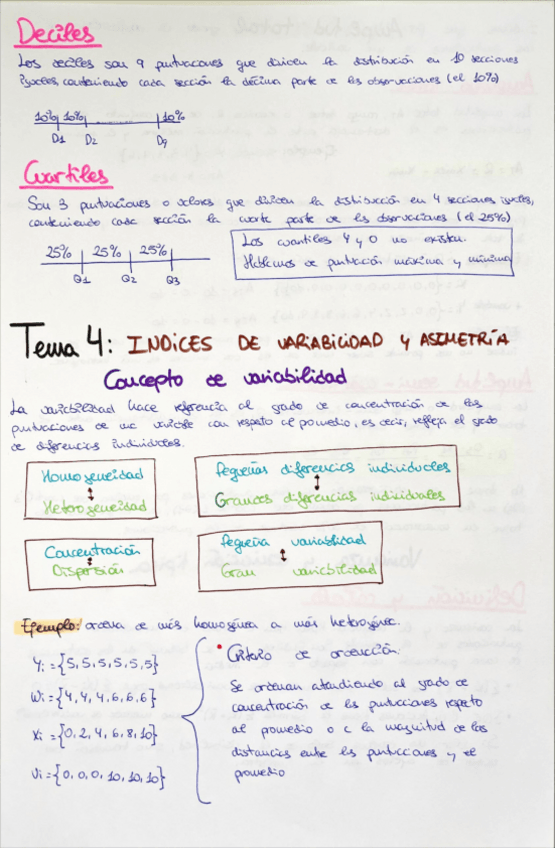 Deciles
Los deciles son 9 puntuaciones que dividen la distribución en 10 secciones
iguales, conteniendo cada sección la décima parte de las observaciones (el 10%)
10% 10% 10%
D1 D2 D9
Cuartiles
Son 3 puntuaciones o valores que dividen la distribución en 4 secciones iguales,
conteniendo cada sección la cuarta parte de las observaciones (el 25%)
25% 25% 25%
Q1 Q2 Q3
Los cuantiles 4 y 0 no existen.
Hablamos de puntuación máxima y mínima
Tema 4: INDICES DE VARIABILIDAD Y ASIMETRÍA
Concepto de variabilidad
La variabilidad hace referencia al grado de concentración de las
puntuaciones de una variable con respecto al promedio, es decir, refleja el grado
de diferencias individuales.
Homogeneidad
Heterogeneidad
Pequeñas diferencias individuales
Grandes diferencias individuales
Concentración
Dispersión
Pequeña variabilidad
Gran variabilidad
Ejemplo: ordena de más homogénea a más heterogénea.
Yi={5,5,5,5,5,5}
Wi={4,4,4,6,6,6}
Xi={0,2,4,6,8,10}
Vi={0,0,0,10,10,10}
Criterio de ordenación:
Se ordenan atendiendo al grado de
concentración de las puntuaciones respecto
al promedio o a la magnitud de las
distancias entre las puntuaciones y el
promedio